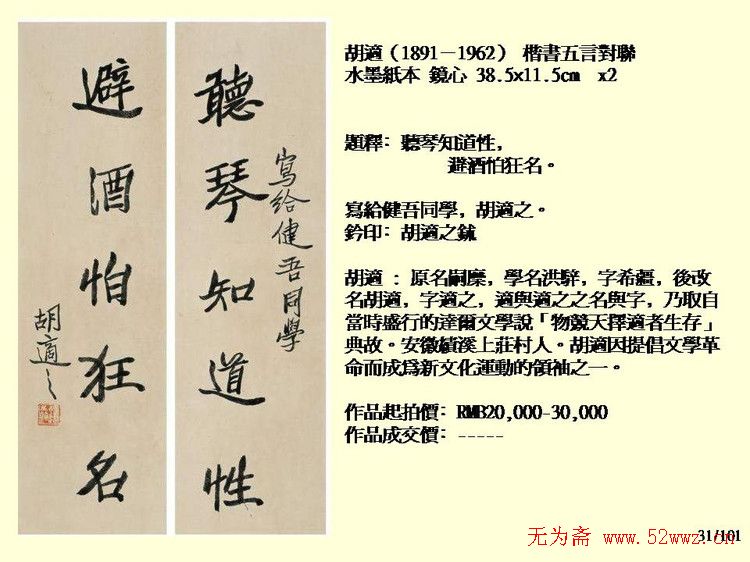 聽琴知道性
寫給健吾同學
避酒怕狂名
胡適之
胡適（1891－1962） 楷書五言對聯
水墨紙本 鏡心 38.5×11.5cm x2
題釋：聽琴知道性，
避酒怕狂名。
寫給健吾同學，胡適之。
鈐印：胡適之鉥
胡適 ：原名嗣穈，學名洪騂，字希疆，後改
名胡適，字適之，適與適之之名與字，乃取自
當時盛行的達爾文學說「物競天擇適者生存」
典故。安徽績溪上莊村人。胡適因提倡文學革
命而成為新文化運動的領袖之一。
作品起拍價：RMB20,000-30,000
作品成交價：-----
31/101
无为斋 www.52wwz.cn